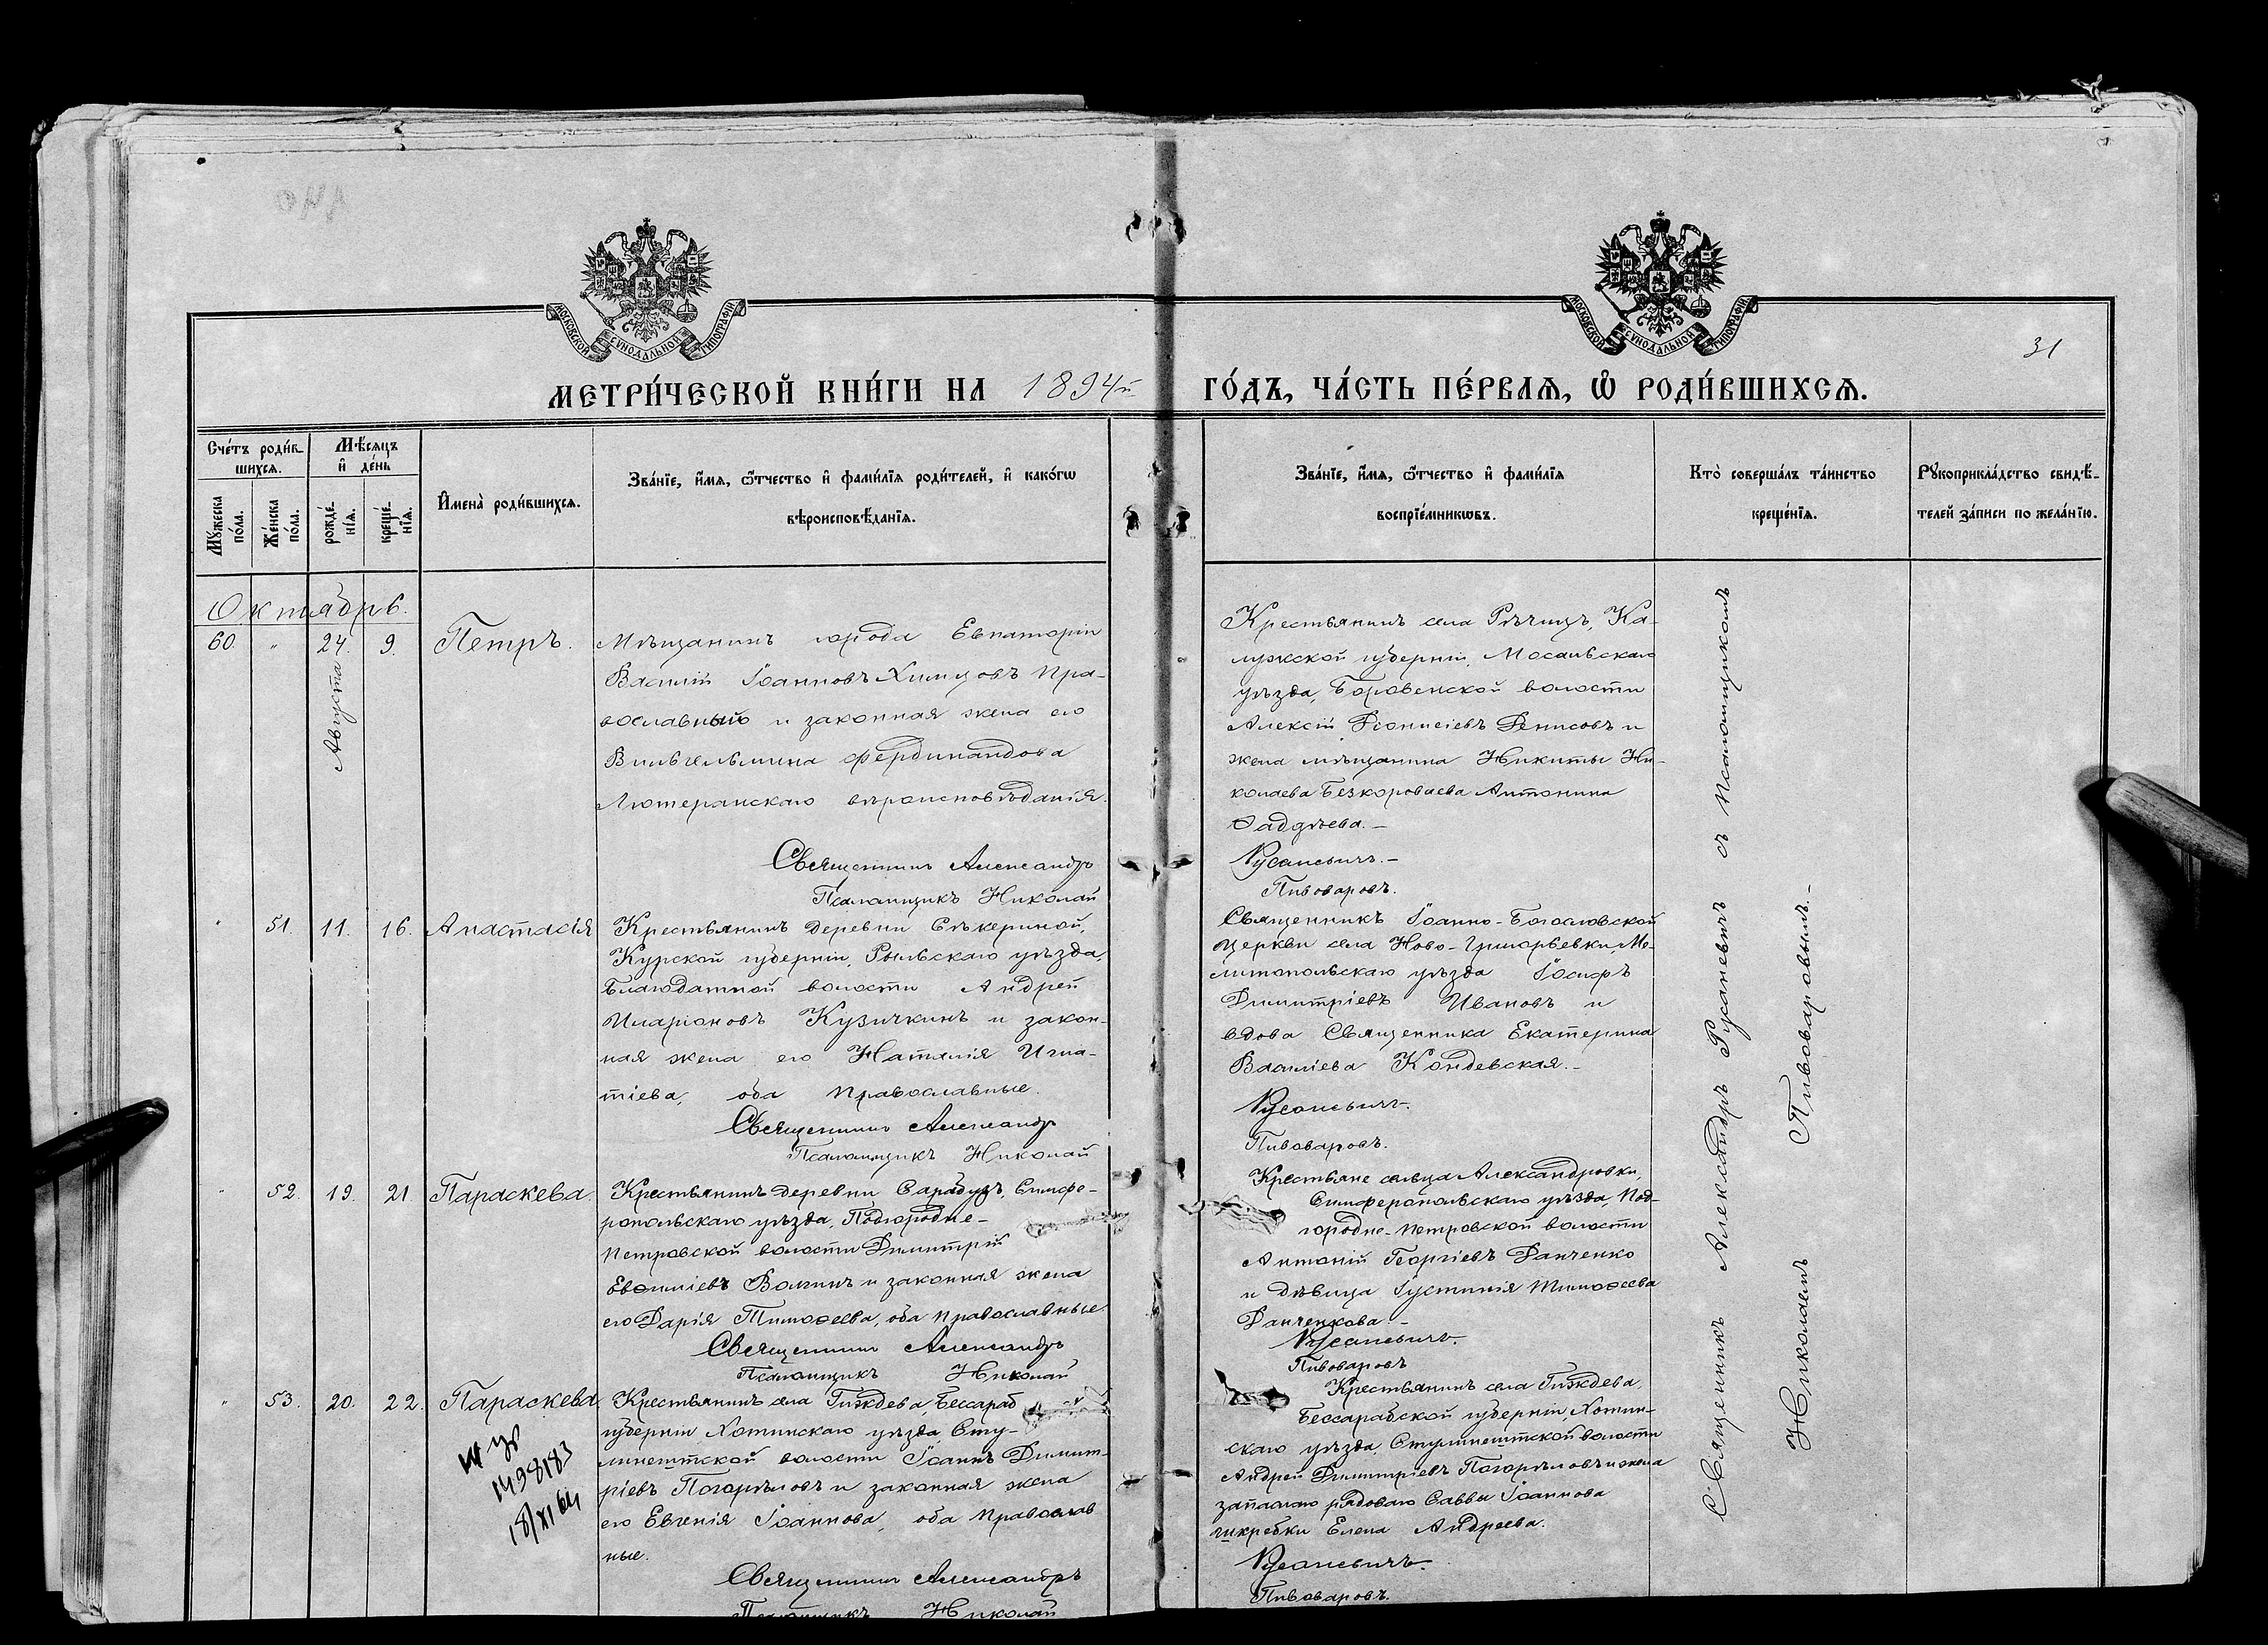 МОСКОВСКОЙ СѴНОДАЛЬНОЙ ТИПОГРАФІИ
МОСКОВСКОЙ СѴНОДАЛЬНОЙ ТИПОГРАФІИ
31
МЕТРИ́ЧЕСКОЙ КНИ́ГИ НА 1894й ГО́ДЪ, ЧА́СТЬ ПЕ́РВАѦ, Ѡ҆ РОДИ́ВШИХСѦ.
Сче́тъ роди́в-
шихсѧ.
Мꙋ́жеска по́ла.
Же́нска по́ла.
Мѣ́сѧцъ
и҆ де́нь
рожде́-
нїѧ.
креще́-
нїѧ.
И҆мена̀ роди́вшихсѧ.
Зва́нїе, и҆́мѧ, ѻ҆́тчество и҆ фами́лїѧ роди́телей, и҆ како́гѡ
вѣроисповѣ́данїѧ.
Зва́нїе, и҆́мѧ, ѻ҆́тчество и҆ фами́лїѧ
воспрїе́мникѡвъ.
Кто̀ соверша́лъ та́инство
креще́нїѧ.
Рꙋкоприкла́дство свидѣ́-
телей за́писи по жела́нїю.
Октябрь.
60. " 24. Августа 9. Петръ.
Мѣщанинъ города Евпаторіи
Василій Іоанновъ Химцовъ пра-
вославный и законная жена его
Вильгельмина Фердинандова
Лютеранскаго вѣроисповѣданія.
Священникъ Александръ
Псаломщикъ Николай
Крестьянинъ села Рѣчицъ, Ка-
лужской губерніи, Мосальскаго
уѣзда, Боровенской волости
Алексій Діонисіевъ Денисовъ и
жена мѣщанина Никиты Ни-
колаева Безкороваева Антонина
Фаддѣева. –
Русаневичъ. –
Пивоваровъ.
" 51. 11. 16. Анастасія
Крестьянинъ деревни Сѣкериной,
Курской губерніи, Рыльскаго уѣзда,
Благодатной волости Андрей
Иларіоновъ Кузичкинъ и закон-
ная жена его Наталія Игна-
тіева, оба православные.
Священникъ Александръ
Псаломщикъ Николай
Священникъ Іоанно-Богословской
церкви села Ново-Григорьевки, Ме-
литопольскаго уѣзда Іосифъ
Димитріевъ Ивановъ и
вдова Священника Екатерина
Василіева Кондевская. –
Русаневичъ.
Пивоваровъ.
" 52. 19. 21. Параскева.
Крестьянинъ деревни Сарабузъ, Симфе-
ропольскаго уѣзда, Подгородне-
Петровской волости Димитрій
Евѳиміевъ Волгинъ и законная жена
его Дарія Тимоѳеева, оба православные
Священникъ Александръ
Псаломщикъ Николай
Крестьяне сельца Александровки,
Симферопольскаго уѣзда, Под-
городне-Петровской волости
Антоній Георгіевъ Данченко
и дѣвица Іустинія Тимоѳеева
Данченкова. –
Русаневичъ.
Пивоваровъ
" 53. 20. 22. Параскева.
1498183
18/XI 64
Крестьянинъ села Гиждева, Бессараб
губерніи Хотинскаго уѣзда, Сту-
линештской волости Іоаннъ Димит-
ріевъ Погорѣловъ и законная жена
его Евгенія Іоаннова, оба православ
ные.
Священникъ Александръ
Псаломщикъ Николай
Крестьянинъ села Гиждева,
Бессарабской губерніи, Хотин-
скаго уѣзда, Стулинештской волости
Андрей Димитріевъ Погорѣловъ и жена
запаснаго рядоваго Саввы Іоаннова
Чикребки Елена Андреева.
Русаневичъ.
Пивоваровъ.
Священникъ Александръ Русаневичъ съ Псаломщикомъ
Николаемъ Пивоваровымъ. –